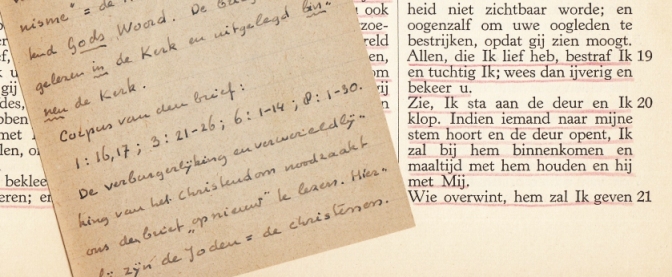 nisme" = de
kend Gods Woord. De
gelezen in de Kerk en uitgelegd bin-
nen de Kerk.
Corpus van den brief:
1:16,17; 3:21-26; 6:1-14; 8:1-30.
De verburgerlijking en verwereldlij-
king van het Christendom noodzaakt
ons den brief "opnieuw" te lezen. Hier-
bij zijn de Joden = de christenen.
ook
zoe-
reld
om
vij
gij
des,
met
len, o
beklee
eren; en
heid niet zichtbaar worde; en
oogenzalf om uwe oogleden te
bestrijken, opdat gij zien moogt.
Allen, die Ik lief heb, bestraf Ik 19
en tuchtig Ik; wees dan ijverig en
bekeer u.
Zie, Ik sta aan de deur en Ik 20
klop. Indien iemand naar mijne
stem hoort en de deur opent, Ik
zal bij hem binnenkomen en
maaltijd met hem houden en hij
met Mij.
Wie overwint, hem zal Ik geven 21